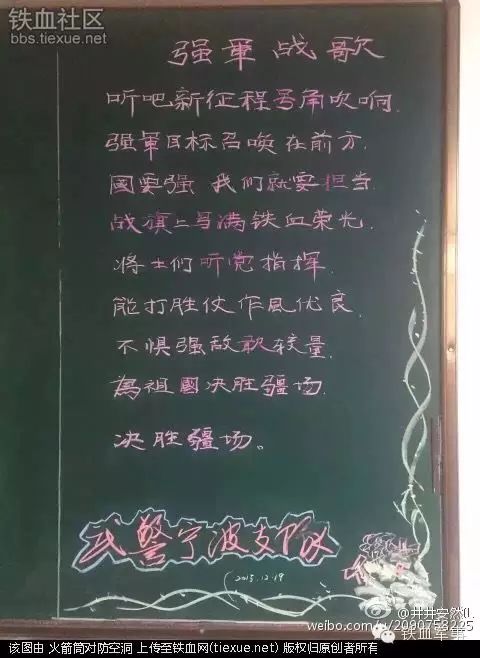 铁血社区
bbs.tiexue.net
强軍战歌
听吧新征程号角吹响.
强軍目标召唤在前方.
國要强 我们就要担当.
战旗上写满铁血荣光.
将士们听党指挥.
能打胜仗作風优良.
不惧强敌敢较量.
為祖國决胜疆场.
决胜疆场。
武警宁波支队
2015.12.19
@井井安然
weibo.com/u/2090753225
铁血军事
该图由 火箭筒对防空洞 上传至铁血网(tiexue.net) 版权归原创者所有